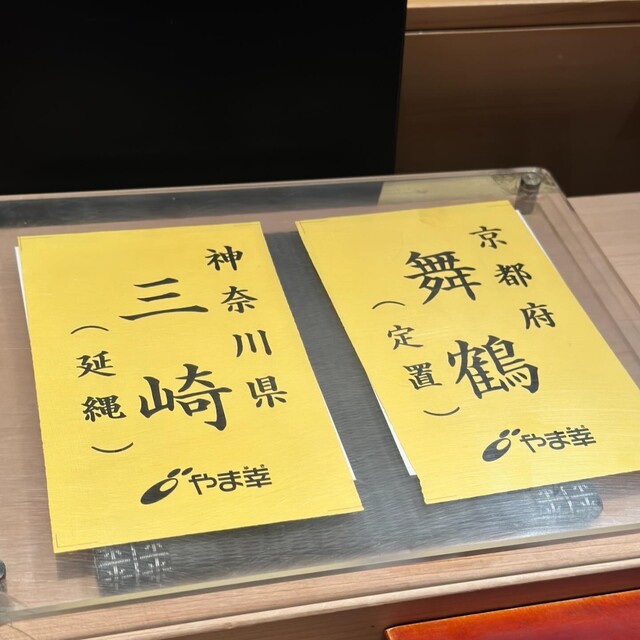 神奈川県
三崎
（延縄）
やま幸
京都府
舞鶴
（定置）
やま幸